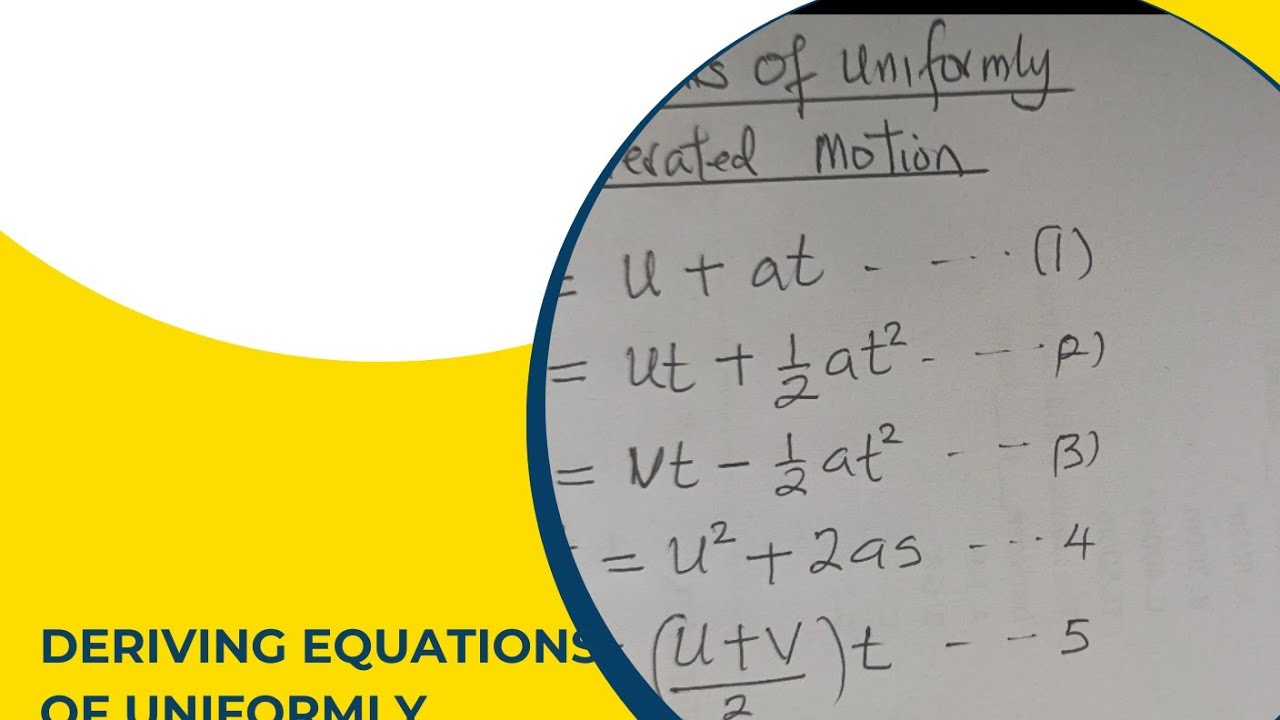 ns of uniformly
erated motion
= u + at - - - - - (1)
= ut + 1/2 at² - - - - 2)
= Vt - 1/2 at² - - - 3)
= u² + 2as - - - - 4
(u+v/2)t - - - 5
DERIVING EQUATIONS
OF UNIFORMLY